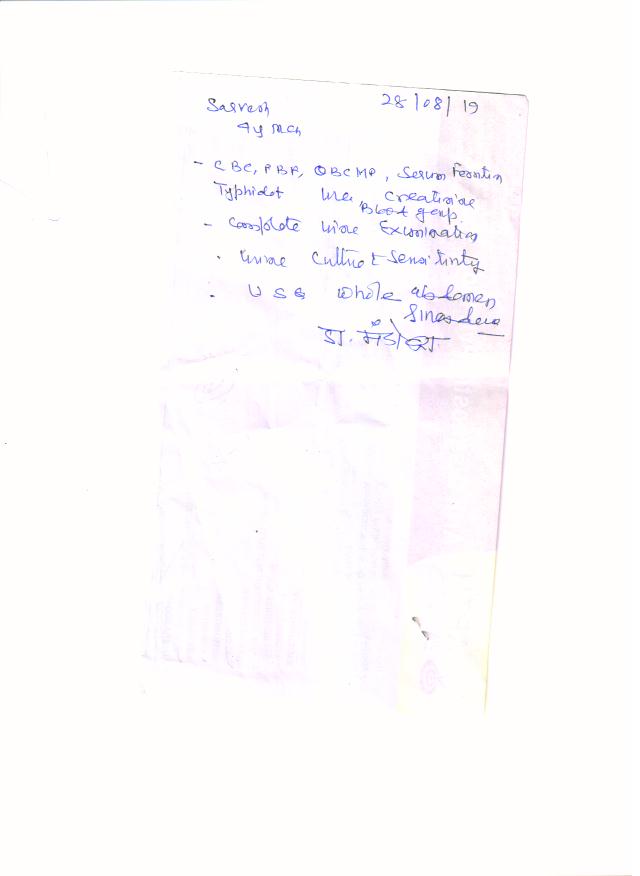 28/08/19
Sarvesh
4y Mch
- CBC, PBF, QBCMP, Serum Ferritin
Typhidot Urea, Creatinine
Blood group.
- Complete Urine Examination
. Urine Culture & Sensitivity
. USG Whole abdomen
डा.